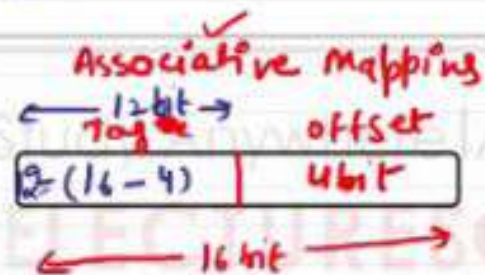 Associative Mapping
← 12 bit →
Tag offset
12=(16-4) 4bit
← 16 bit →